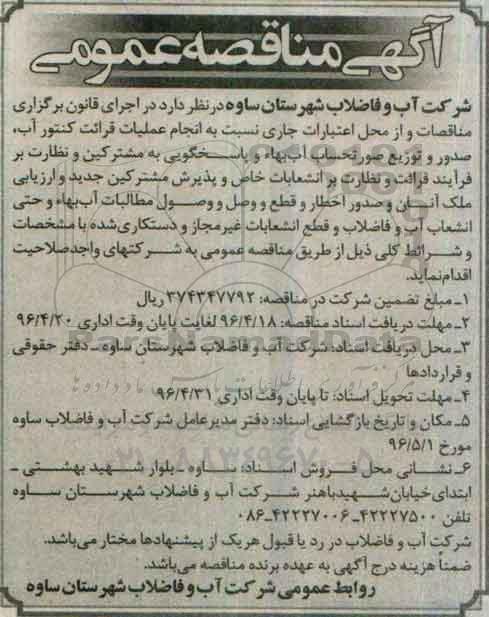 آگهی مناقصه عمومی
شرکت آب و فاضلاب شهرستان ساوه در نظر دارد در اجرای قانون برگزاری
مناقصات و از محل اعتبارات جاری نسبت به انجام عملیات قرائت کنتور آب،
صدور و توزیع صورتحساب آب‌بهاء و پاسخگویی به مشترکین و نظارت بر
فرآیند قرائت و نظارت بر انشعابات خاص و پذیرش مشترکین جدید و ارزیابی
ملک آنان و صدور اخطار و قطع و وصل و وصول مطالبات آب‌بهاء و حتی
انشعاب آب و فاضلاب و قطع انشعابات غیرمجاز و دستکاری‌شده با مشخصات
و شرائط کلی ذیل از طریق مناقصه عمومی به شرکتهای واجدصلاحیت
اقدام‌نماید.
۱ـ مبلغ تضمین شرکت در مناقصه: ۳۷۴۳۴۷۷۹۲ ریال
۲ـ مهلت دریافت اسناد مناقصه: ۹۶/۴/۱۸ لغایت پایان وقت اداری ۹۶/۴/۲۰
۳ـ محل دریافت اسناد: شرکت آب و فاضلاب شهرستان ساوه ـ دفتر حقوقی
و قراردادها
۴ـ مهلت تحویل اسناد: تا پایان وقت اداری ۹۶/۴/۳۱
۵ـ مکان و تاریخ بازگشایی اسناد: دفتر مدیرعامل شرکت آب و فاضلاب ساوه
مورخ ۹۶/۵/۱
۶ـ نشانی محل فروش اسناد: ساوه ـ بلوار شهید بهشتی ـ
ابتدای خیابان شهید باهنر شرکت آب و فاضلاب شهرستان ساوه
تلفن ۴۲۲۲۷۵۰۰ـ۴۲۲۲۷۰۰۶ـ۰۸۶
شرکت آب و فاضلاب در رد یا قبول هریک از پیشنهادها مختار می‌باشد.
ضمناً هزینه درج آگهی به عهده برنده مناقصه می‌باشد.
روابط عمومی شرکت آب و فاضلاب شهرستان ساوه